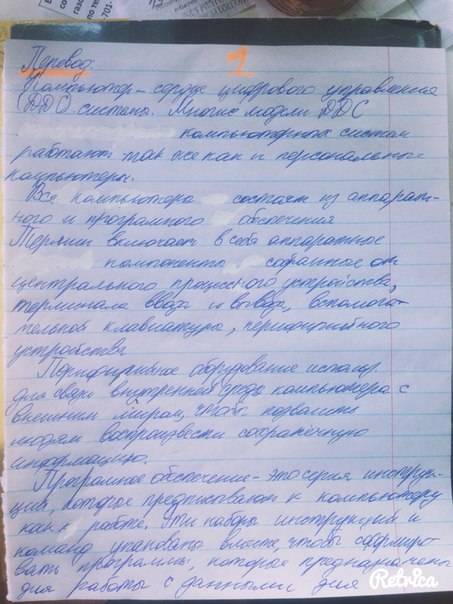 Перевод.
1
Компьютер - сердце цифрового управления
(DDC) система. Многие модели DDC
компьютерных систем
работают так же как и персональные
компьютеры.
Все компьютера состоят из аппарат-
ного и програмного обспечения
Термин включает в себя аппаратное
компоненто созданное от
центрального процессного устройства,
терминала ввода и вывода, вспомога
тельной клавиатуры, периферийного
устройства
Периферийное оборудование использ.
для связи внутренней среды компьютера с
внешним миром, чтобы позволить
людям воспроизвести сохранённую
информацию.
Програмное обспечение - это серия инструк-
ций, которое предписывают к компьютеру
как к работе. Эти наборы инструкций и
команд упакованы вместе, чтобы сформиро
вать программы, которое предназначены
для работы с данными для
Retrica